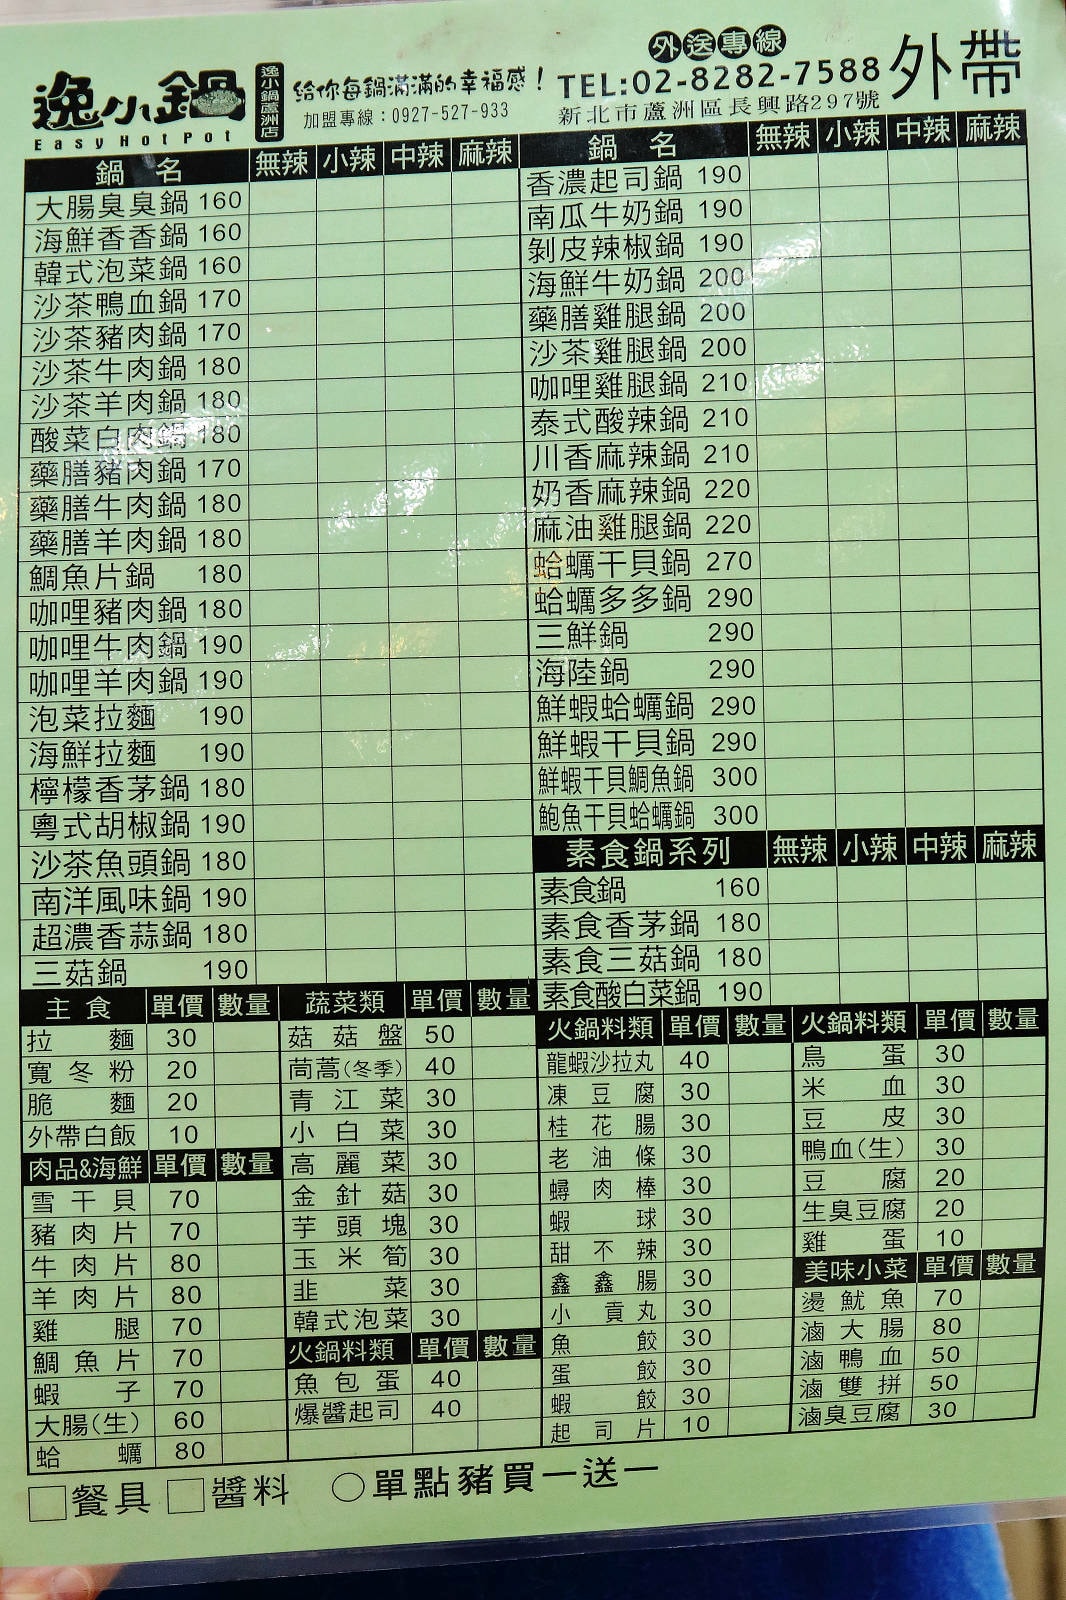 逸小鍋
Easy Hot Pot
逸小鍋蘆洲店
給你每鍋滿滿的幸福感！
加盟專線：0927-527-933
外送專線
TEL:02-8282-7588
新北市蘆洲區長興路297號
外帶
鍋 名 無辣 小辣 中辣 麻辣
大腸臭臭鍋 160
海鮮香香鍋 160
韓式泡菜鍋 160
沙茶鴨血鍋 170
沙茶豬肉鍋 170
沙茶牛肉鍋 180
沙茶羊肉鍋 180
酸菜白肉鍋 180
藥膳豬肉鍋 170
藥膳牛肉鍋 180
藥膳羊肉鍋 180
鯛魚片鍋 180
咖哩豬肉鍋 180
咖哩牛肉鍋 190
咖哩羊肉鍋 190
泡菜拉麵 190
海鮮拉麵 190
檸檬香茅鍋 180
粵式胡椒鍋 190
沙茶魚頭鍋 180
南洋風味鍋 190
超濃香蒜鍋 180
三菇鍋 190
鍋 名 無辣 小辣 中辣 麻辣
香濃起司鍋 190
南瓜牛奶鍋 190
剝皮辣椒鍋 190
海鮮牛奶鍋 200
藥膳雞腿鍋 200
沙茶雞腿鍋 200
咖哩雞腿鍋 210
泰式酸辣鍋 210
川香麻辣鍋 210
奶香麻辣鍋 220
麻油雞腿鍋 220
蛤蠣干貝鍋 270
蛤蠣多多鍋 290
三鮮鍋 290
海陸鍋 290
鮮蝦蛤蠣鍋 290
鮮蝦干貝鍋 290
鮮蝦干貝鯛魚鍋 300
鮑魚干貝蛤蠣鍋 300
素食鍋系列 無辣 小辣 中辣 麻辣
素食鍋 160
素食香茅鍋 180
素食三菇鍋 180
素食酸白菜鍋 190
主食 單價 數量
拉麵 30
寬冬粉 20
脆麵 20
外帶白飯 10
肉品&海鮮 單價 數量
雪干貝 70
豬肉片 70
牛肉片 80
羊肉片 80
雞腿 70
鯛魚片 70
蝦子 70
大腸(生) 60
蛤蠣 80
蔬菜類 單價 數量
菇菇盤 50
茼蒿(冬季) 40
青江菜 30
小白菜 30
高麗菜 30
金針菇 30
芋頭塊 30
玉米筍 30
韭菜 30
韓式泡菜 30
火鍋料類 單價 數量
魚包蛋 40
爆醬起司 40
火鍋料類 單價 數量
龍蝦沙拉丸 40
凍豆腐 30
桂花腸 30
老油條 30
蟳肉棒 30
蝦球 30
甜不辣 30
鑫鑫腸 30
小貢丸 30
魚餃 30
蛋餃 30
蝦餃 30
起司片 10
火鍋料類 單價 數量
鳥蛋 30
米血 30
豆皮 30
鴨血(生) 30
豆腐 20
生臭豆腐 20
雞蛋 10
美味小菜 單價 數量
燙魷魚 70
滷大腸 80
滷鴨血 50
滷雙拼 50
滷臭豆腐 30
□餐具 □醬料 ○單點豬買一送一